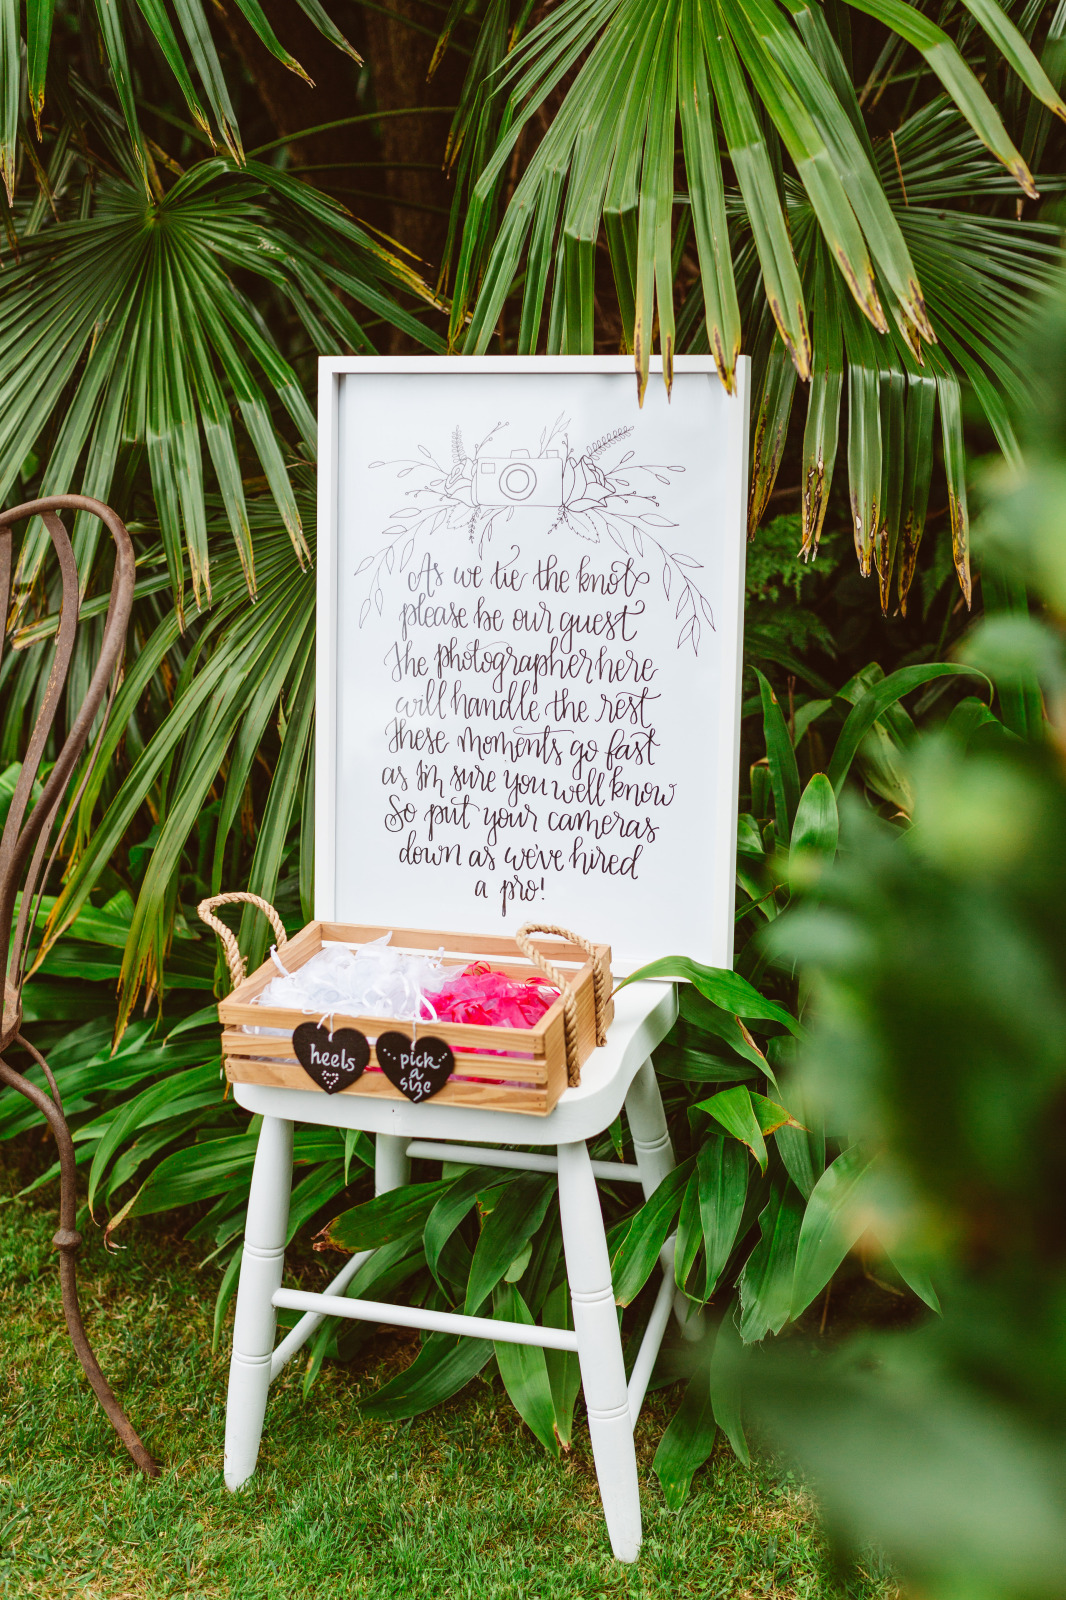 As we tie the knot
please be our guest
The photographer here
will handle the rest
These moments go fast
as I'm sure you well know
So put your cameras
down as we've hired
a pro!
heels
pick
a
size